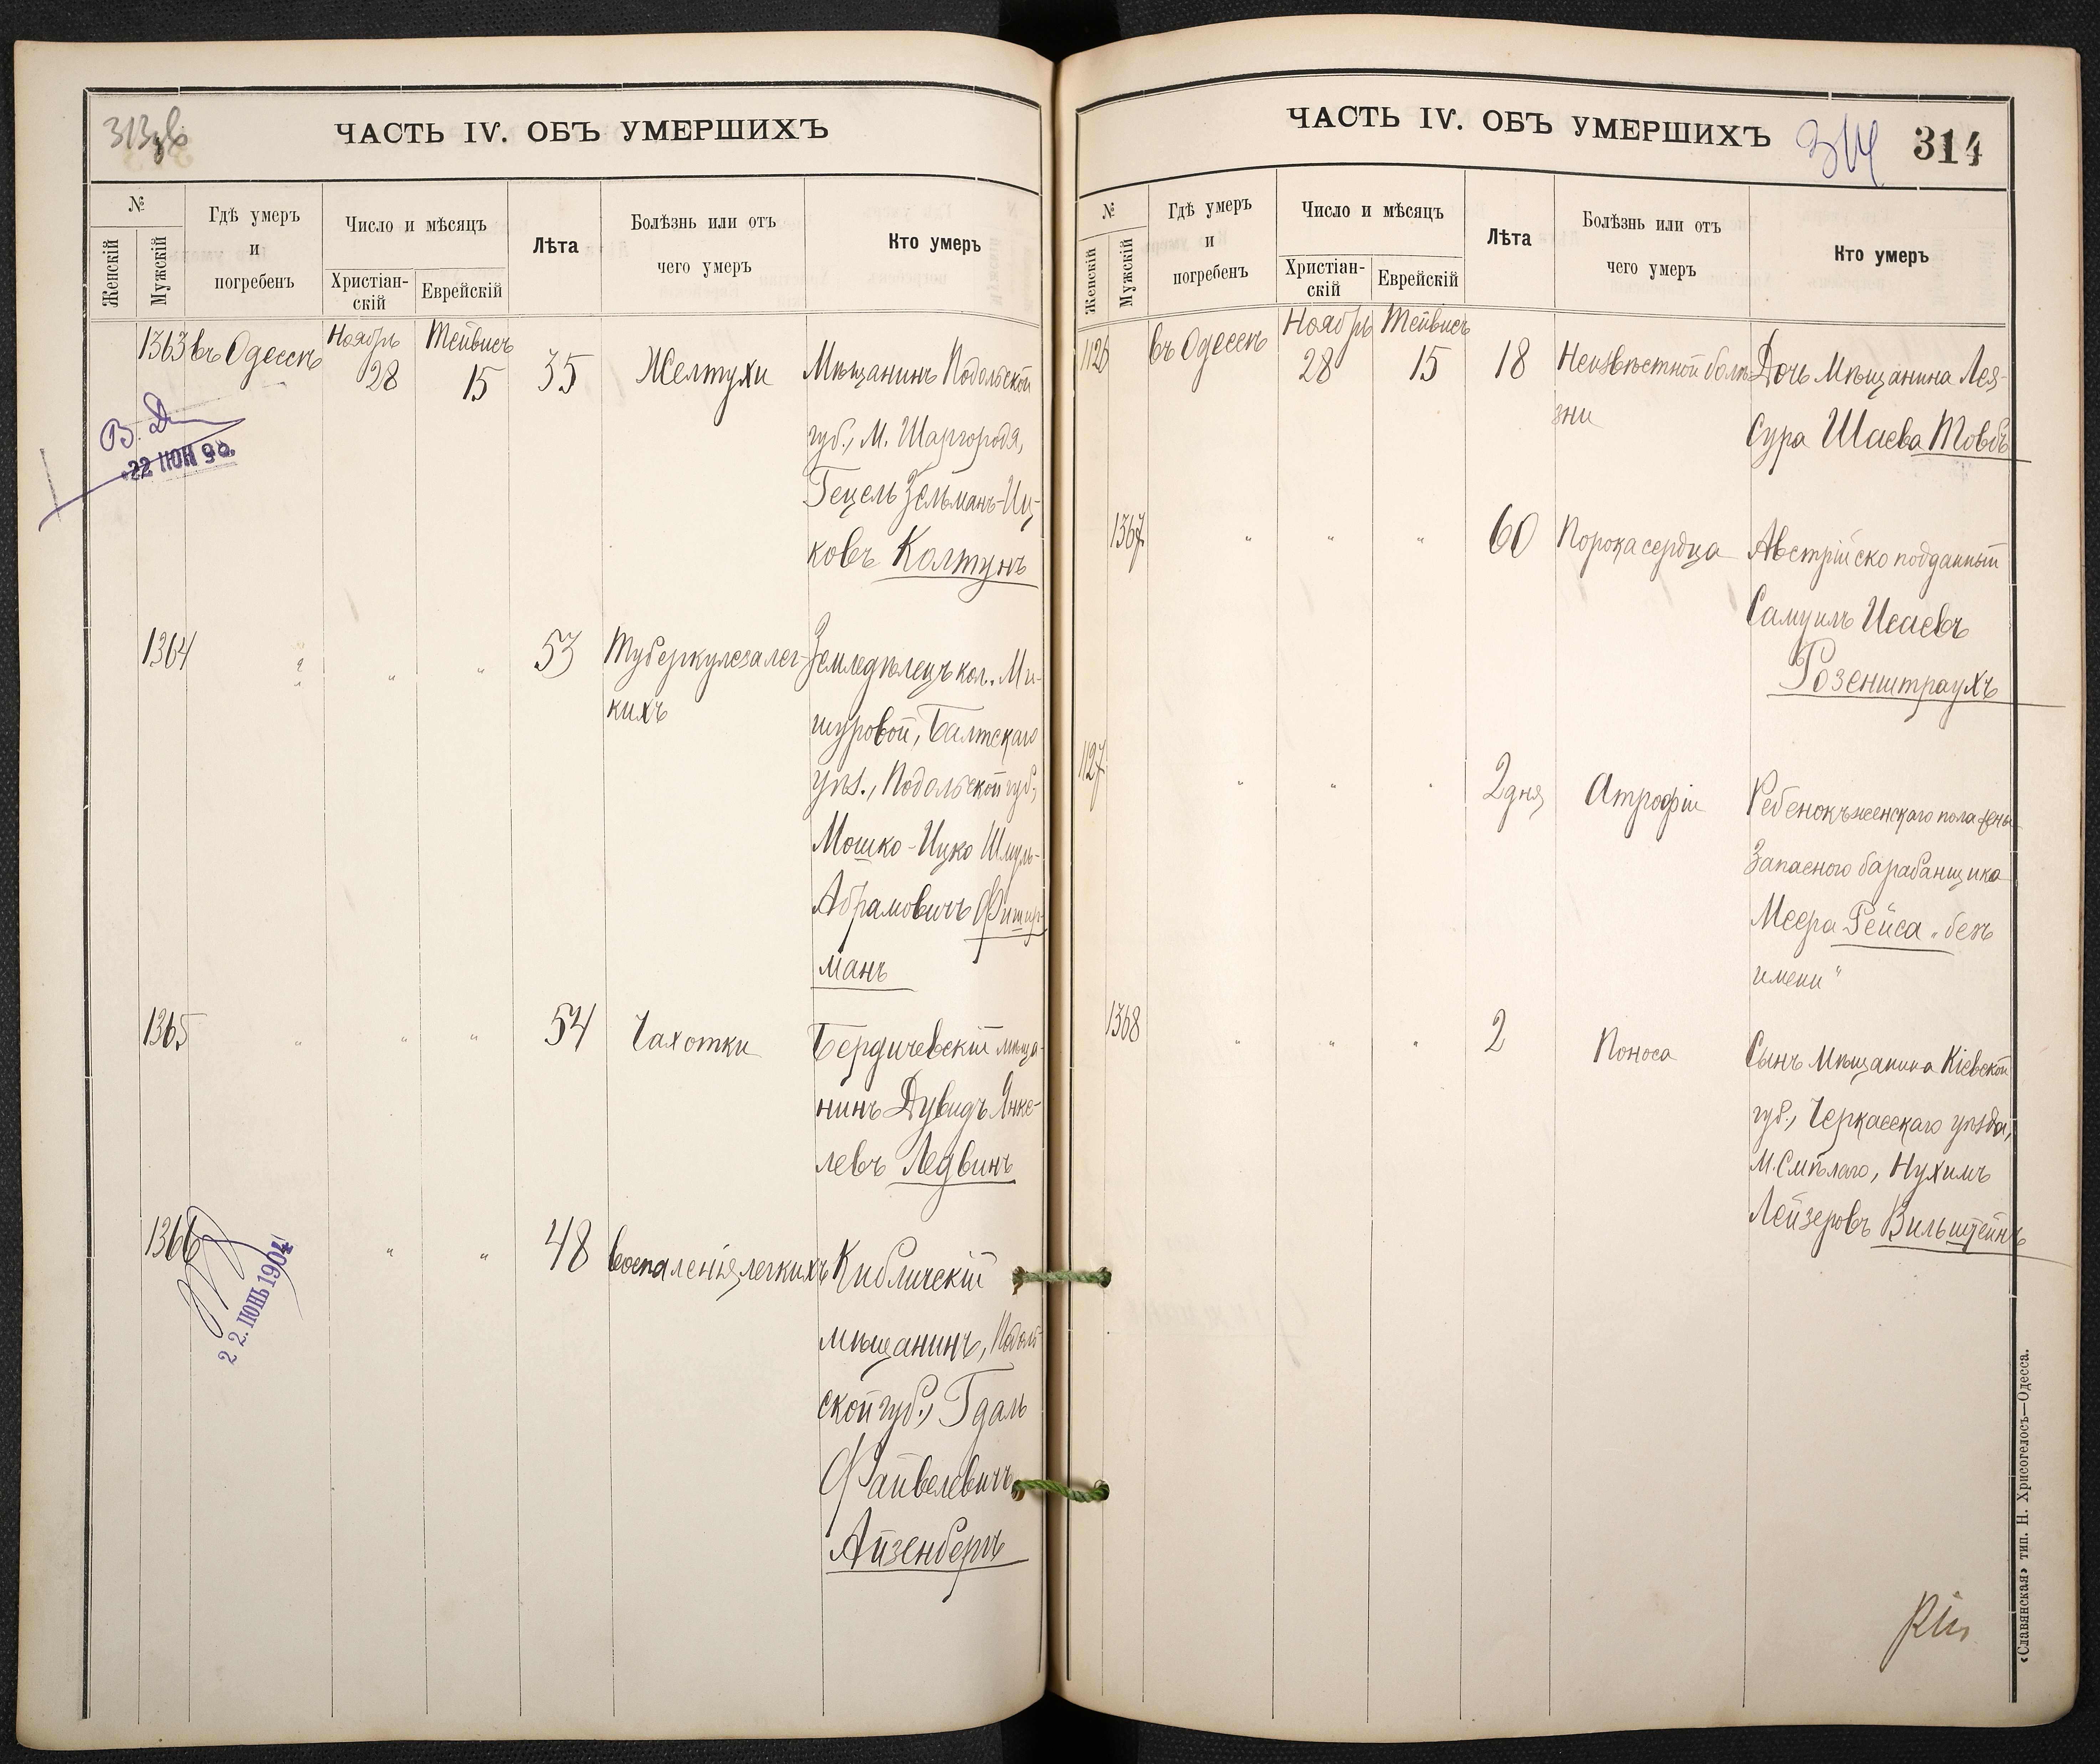 313 об
ЧАСТЬ IV. ОБЪ УМЕРШИХЪ
№
Женскій
Мужскій
Гдѣ умеръ
и
погребенъ
Число и мѣсяцъ
Христіан-
скій
Еврейскій
Лѣта
Болѣзнь или отъ
чего умеръ
Кто умеръ
1363 въ Одессѣ Ноябрь 28 Тейвисъ 15 35 Желтухи Мѣщанинъ Подольской
губ., М. Шаргорода,
Гецель Зельманъ-Иц-
ковъ Колтунъ
22 ІЮН 9
1364 " " " 53 Туберкулеза лег- Земледѣлецъ кол. Ми-
кихъ
шуровой, Балтскаго
уѣз., Подольской губ.,
Мошко-Ицко Шмуль-
Абрамовичъ Фишер-
манъ
1365 " " " 54 Чахотки Бердичевскій мѣща-
нинъ Дувидъ Янке-
левъ Ледвинъ
1366 " " 48 Воспаленія легкихъ Кибличскій
мѣщанинъ, Подоль-
ской губ., Гдаль
Файвелевичъ
Айзенбергъ
22. ІЮНЬ 1904
ЧАСТЬ IV. ОБЪ УМЕРШИХЪ
314
314
№
Женскій
Мужскій
Гдѣ умеръ
и
погребенъ
Число и мѣсяцъ
Христіан-
скій
Еврейскій
Лѣта
Болѣзнь или отъ
чего умеръ
Кто умеръ
1126 въ Одессѣ Ноябрь 28 Тейвисъ 15 18 Неизвѣстной болѣ- Дочь Мѣщанина Лея-
зни
Сура Шаева Товбъ
1367 " " " 60 Порока сердца Австрійско подданный
Самуилъ Исаевъ
Розенштраухъ
1127 " " " 2 дня Атрофіи Ребенокъ женскаго пола жены
Запаснаго барабанщика
Меера Рейса "безъ
имени"
1368 " " " 2 Поноса Сынъ Мѣщанина Кіевской
губ., Черкасскаго уѣзда,
М. Смѣлаго, Нухимъ
Лейзеровъ Вильштейнъ
«Славянская» тип. Н. Хрисогелосъ—Одесса.